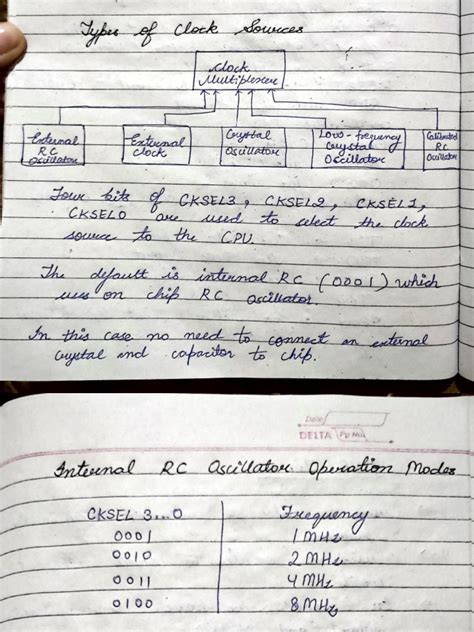 Types of Clock Sources
Clock
Multiplexer
External
RC
Oscillator
External
Clock
Crystal
Oscillator
Low-frequency
Crystal
Oscillator
Calibrated
RC
Oscillator
Four bits of CKSEL3, CKSEL2, CKSEL1,
CKSEL0 are used to select the clock
source to the CPU.
The default is internal RC (0001) which
uses on chip RC oscillator.
In this case no need to connect an external
crystal and capacitor to chip.
Date
DELTA Pg No.
Internal RC Oscillator Operation Modes
CKSEL 3...0 Frequency
0001 1 MHz
0010 2 MHz
0011 4 MHz
0100 8 MHz